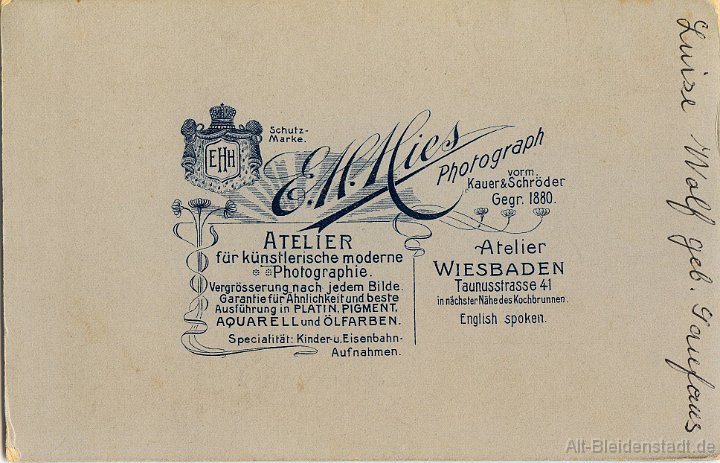 Schutz-
Marke.
EHH
E.H.Hies
Photograph
vorm.
Kauer & Schröder
Gegr. 1880.
ATELIER
für künstlerische moderne
Photographie.
Vergrösserung nach jedem Bilde.
Garantie für Ähnlichkeit und beste
Ausführung in PLATIN, PIGMENT,
AQUARELL und ÖLFARBEN.
Specialität: Kinder- u. Eisenbahn-
Aufnahmen.
Atelier
WIESBADEN
Taunusstrasse 41
in nächster Nähe des Kochbrunnen.
English spoken.
Luise Wolf geb.
Alt-Bleidenstadt.de